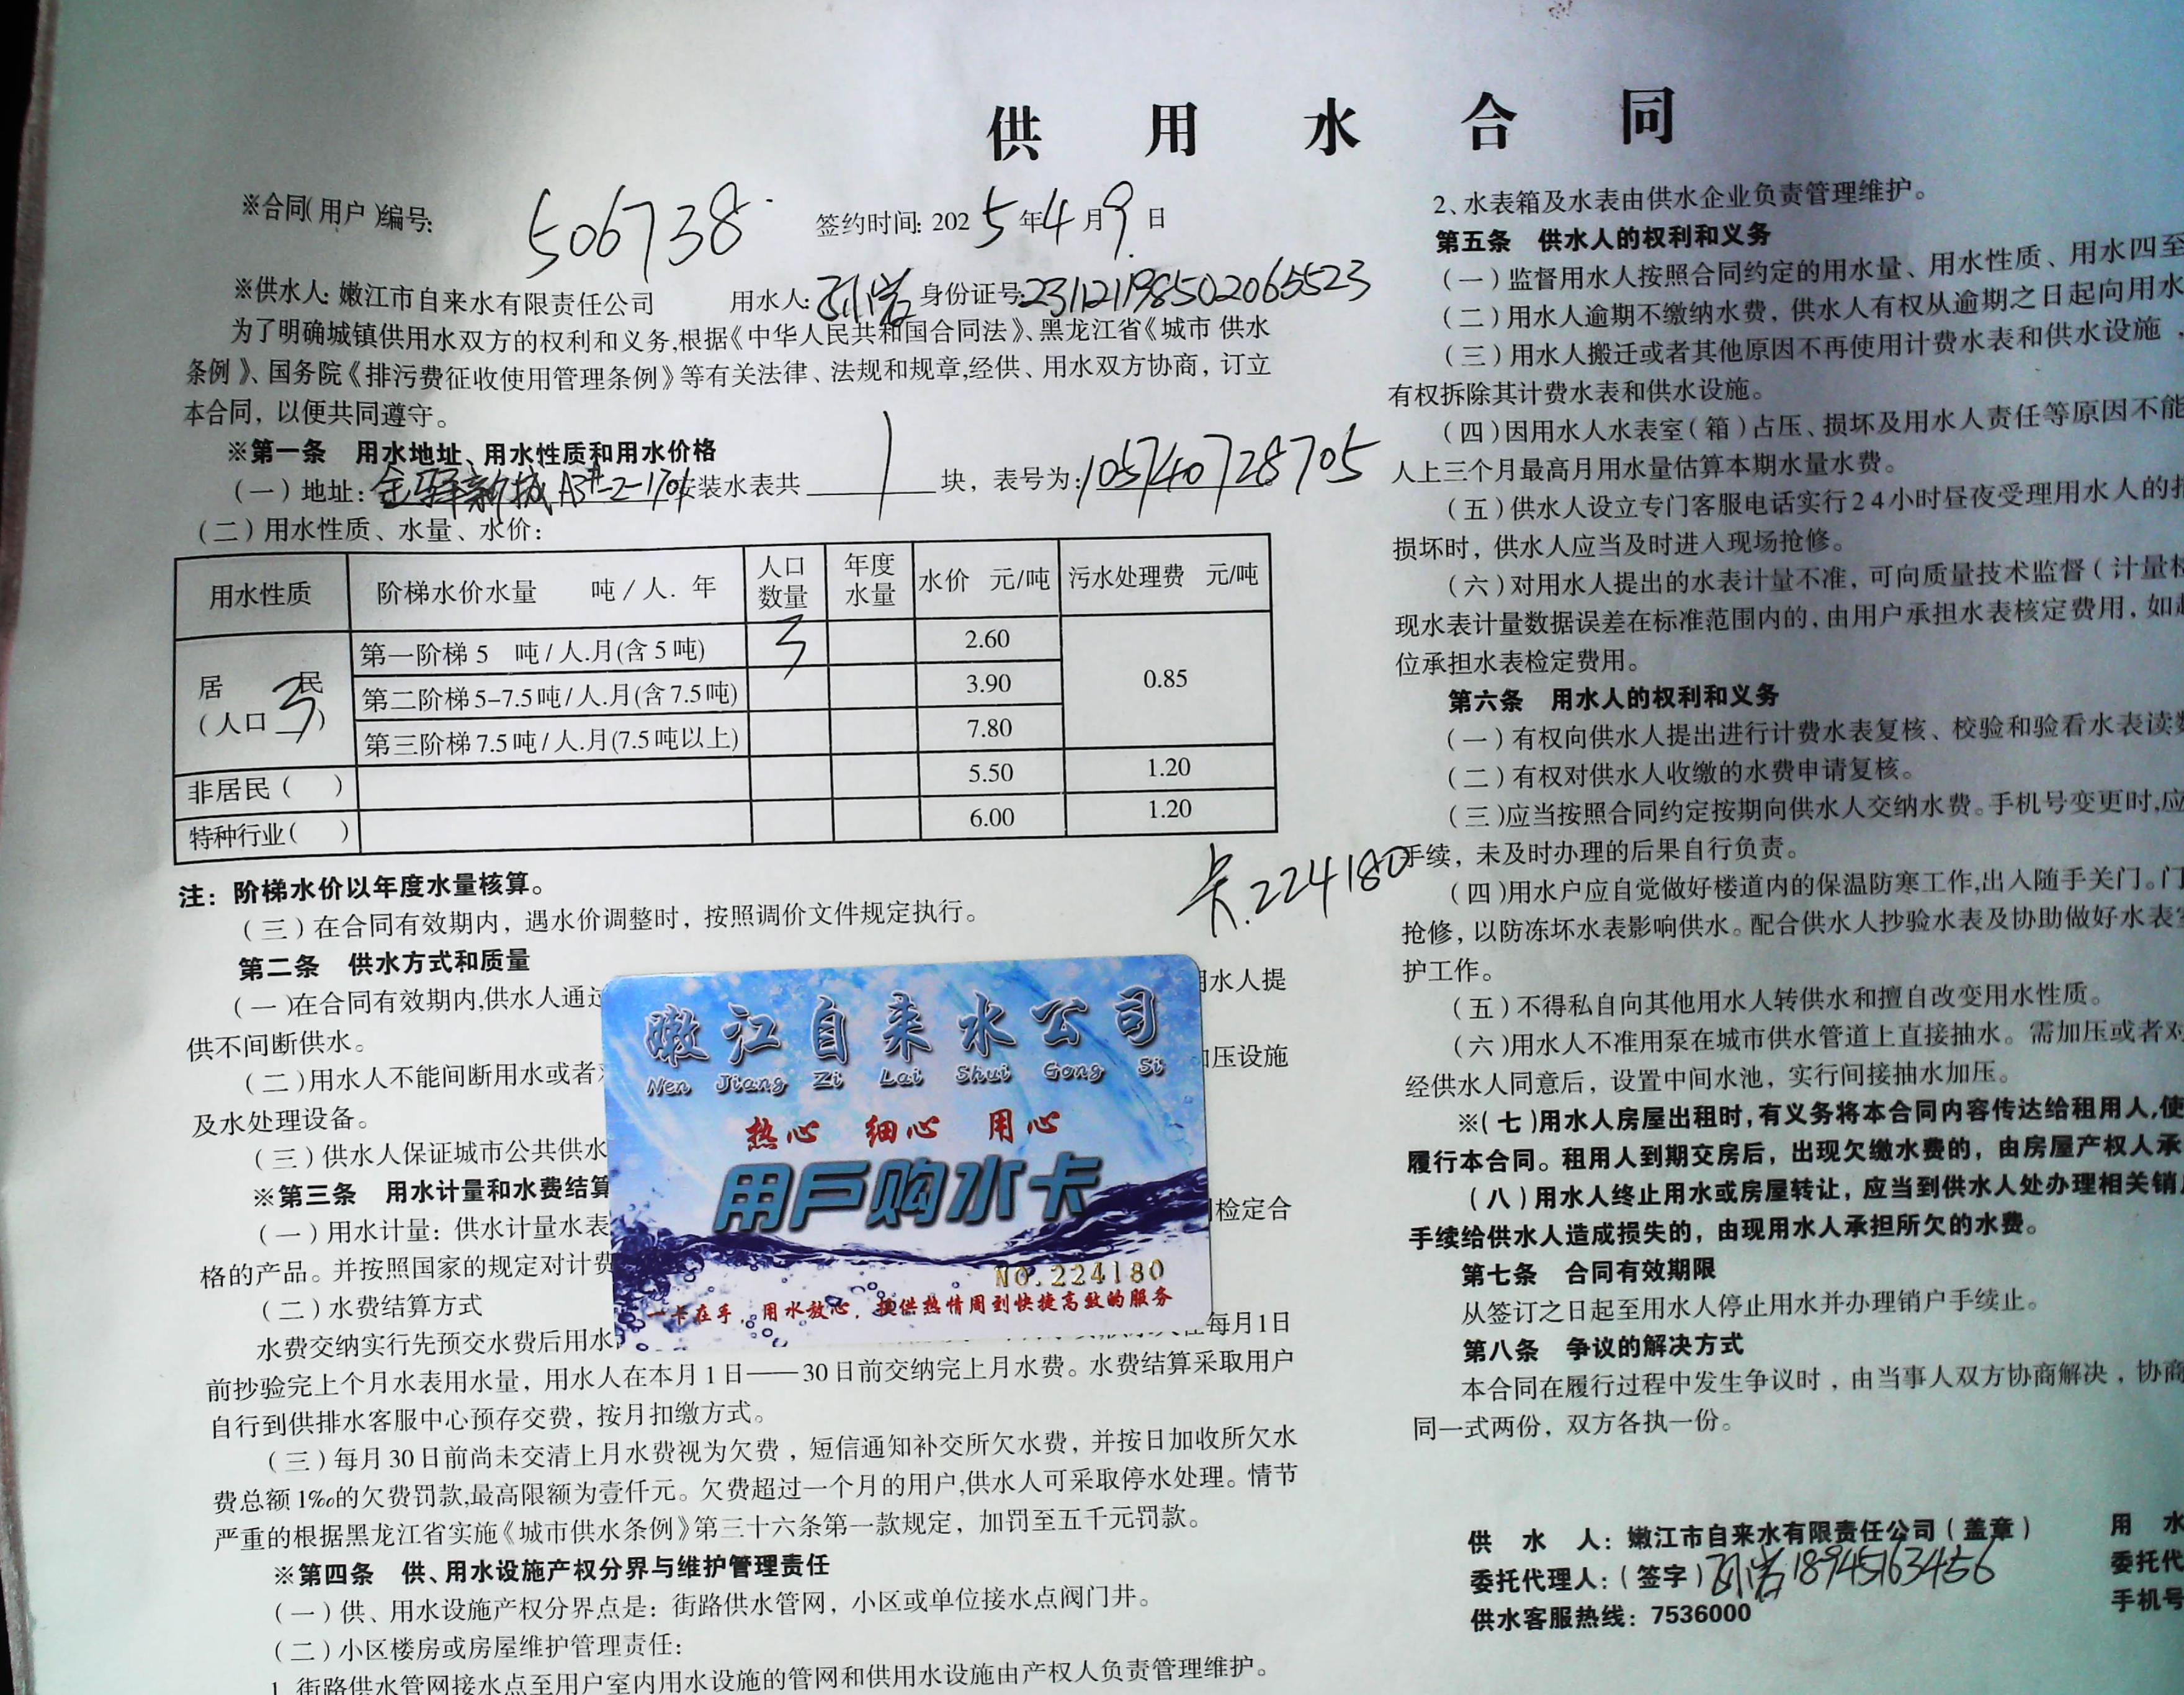 供用水合同
※合同(用户)编号: 506738 签约时间: 2025年4月9日
※供水人: 嫩江市自来水有限责任公司 用水人: 孙岩 身份证号: 231121198502065523
为了明确城镇供用水双方的权利和义务,根据《中华人民共和国合同法》、黑龙江省《城市 供水
条例》、国务院《排污费征收使用管理条例》等有关法律、法规和规章,经供、用水双方协商，订立
本合同，以便共同遵守。
※第一条 用水地址、用水性质和用水价格
(一)地址: 金驿新城A3#-2-1701 安装水表共 1 块，表号为: 105740728705
(二)用水性质、水量、水价:
用水性质 阶梯水价水量 吨/人. 年 人口数量 年度水量 水价 元/吨 污水处理费 元/吨
居民(人口 3) 第一阶梯 5 吨/人.月(含5吨) 3 2.60 0.85
第二阶梯 5-7.5吨/人.月(含7.5吨) 3.90
第三阶梯 7.5吨/人.月(7.5吨以上) 7.80
非居民( ) 5.50 1.20
特种行业( ) 6.00 1.20
卡.224180
注: 阶梯水价以年度水量核算。
(三)在合同有效期内，遇水价调整时，按照调价文件规定执行。
第二条 供水方式和质量
(一)在合同有效期内,供水人通过 用水人提
供不间断供水。
(二)用水人不能间断用水或者 加压设施
及水处理设备。
(三)供水人保证城市公共供水
※第三条 用水计量和水费结算
(一)用水计量: 供水计量水表 检定合
格的产品。并按照国家的规定对计费
(二)水费结算方式
水费交纳实行先预交水费后用水 每月1日
前抄验完上个月水表用水量，用水人在本月1日——30日前交纳完上月水费。水费结算采取用户
自行到供排水客服中心预存交费，按月扣缴方式。
(三)每月30日前尚未交清上月水费视为欠费，短信通知补交所欠水费，并按日加收所欠水
费总额1‰的欠费罚款,最高限额为壹仟元。欠费超过一个月的用户,供水人可采取停水处理。情节
严重的根据黑龙江省实施《城市供水条例》第三十六条第一款规定，加罚至五千元罚款。
※第四条 供、用水设施产权分界与维护管理责任
(一)供、用水设施产权分界点是: 街路供水管网，小区或单位接水点阀门井。
(二)小区楼房或房屋维护管理责任:
1、街路供水管网接水点至用户室内用水设施的管网和供用水设施由产权人负责管理维护。
嫩江自来水公司
Nen Jiang Zi Lai Shui Gong Si
热心 细心 用心
用户购水卡
NO.224180
一卡在手，用水放心，提供热情周到快捷高效的服务
2、水表箱及水表由供水企业负责管理维护。
第五条 供水人的权利和义务
(一)监督用水人按照合同约定的用水量、用水性质、用水四至
(二)用水人逾期不缴纳水费，供水人有权从逾期之日起向用水
(三)用水人搬迁或者其他原因不再使用计费水表和供水设施，
有权拆除其计费水表和供水设施。
(四)因用水人水表室(箱)占压、损坏及用水人责任等原因不能
人上三个月最高月用水量估算本期水量水费。
(五)供水人设立专门客服电话实行24小时昼夜受理用水人的
损坏时，供水人应当及时进入现场抢修。
(六)对用水人提出的水表计量不准，可向质量技术监督(计量
现水表计量数据误差在标准范围内的，由用户承担水表核定费用，如
位承担水表检定费用。
第六条 用水人的权利和义务
(一)有权向供水人提出进行计费水表复核、校验和验看水表读
(二)有权对供水人收缴的水费申请复核。
(三)应当按照合同约定按期向供水人交纳水费。手机号变更时,应
手续，未及时办理的后果自行负责。
(四)用水户应自觉做好楼道内的保温防寒工作,出入随手关门。门
抢修，以防冻坏水表影响供水。配合供水人抄验水表及协助做好水表
护工作。
(五)不得私自向其他用水人转供水和擅自改变用水性质。
(六)用水人不准用泵在城市供水管道上直接抽水。需加压或者对
经供水人同意后，设置中间水池，实行间接抽水加压。
※(七)用水人房屋出租时,有义务将本合同内容传达给租用人,使
履行本合同。租用人到期交房后，出现欠缴水费的，由房屋产权人承
(八)用水人终止用水或房屋转让，应当到供水人处办理相关销
手续给供水人造成损失的，由现用水人承担所欠的水费。
第七条 合同有效期限
从签订之日起至用水人停止用水并办理销户手续止。
第八条 争议的解决方式
本合同在履行过程中发生争议时，由当事人双方协商解决，协商
同一式两份，双方各执一份。
供 水 人: 嫩江市自来水有限责任公司(盖章) 用 水
委托代理人: (签字) 孙岩 18945163456 委托代
供水客服热线: 7536000 手机号